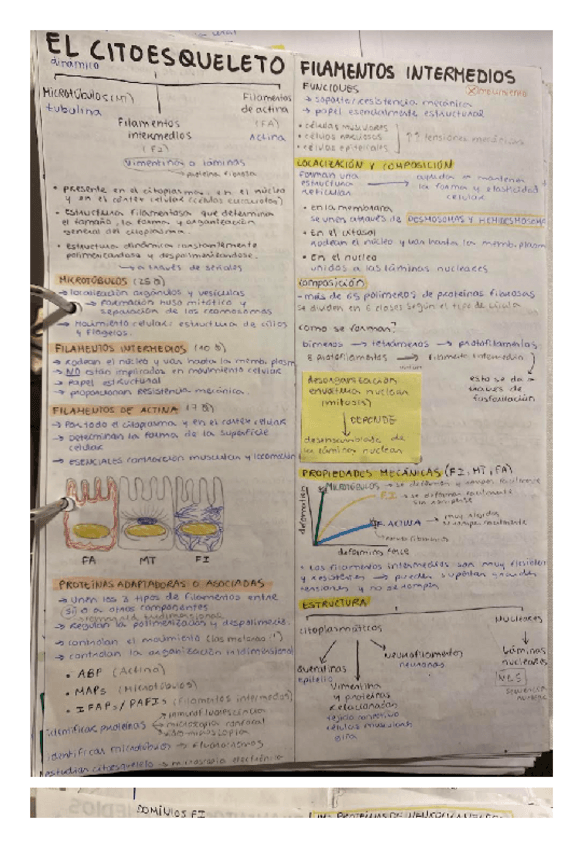 EL CITOESQUELETO
dinámico
MICROTÚBULOS (MT)
tubulina
Filamentos
intermedios
(FI)
Vimentina o láminas
proteína fibrosa
Filamentos
de actina
(FA)
Actina
• presente en el citoplasma, en el núcleo
y en el córtex celular (células eucariotas)
• estructura filamentosa que determina
el tamaño, la forma y organización
general del citoplasma
• Estructura dinámica constantemente
polimerizandose y despolimerizandose.
→ a través de señales
MICROTÚBULOS (25 Ø)
→ localización orgánulos y vesículas
→ Formación huso mitótico y
separación de los cromosomas
→ Movimiento celular: estructura de cilios
y flagelos.
FILAMENTOS INTERMEDIOS (10 Ø)
→ rodean el núcleo y van hasta la memb. plasm
→ NO están implicados en movimiento celular
→ Papel estructural
→ proporcionan resistencia mecánica.
FILAMENTOS DE ACTINA (7 Ø)
→ Por todo el citoplasma y en el córtex celular
→ Determinan la forma de la superficie
celular
→ ESENCIALES contracción muscular y locomoción
FA MT FI
PROTEÍNAS ADAPTADORAS O ASOCIADAS
→ Unen los 3 tipos de filamentos entre
sí o a otros componentes
→ Regulan la polimerización y despolimeriz.
→ controlan el movimiento (las motoras !)
→ controlan la organización tridimensional
• ABP (Actina)
• MAPs (Microtúbulos)
• IFAPs / (Filamentos intermedios)
identificar proteínas
inmunofluorescencia
microscopia confocal
identificas microtúbulos → fluorocromos
estudiar citoesqueleto → microscopio electrónico
FILAMENTOS INTERMEDIOS
FUNCIONES
movimiento
→ soporte/resistencia mecánica
→ papel esencialmente estructural
• células musculares
• células nerviosas
• células epiteliales
↑↑ tensiones mecánicas
LOCALIZACIÓN Y COMPOSICIÓN
forman una
estructura
reticular
ayudan a mantener
la forma y elasticidad
celular
• en la membrana
se unen a través de DESMOSOMAS Y HEMIDESMOSOMAS
• En el citosol
rodean el núcleo y van hasta la memb. plasm
• En el núcleo
unidos a las láminas nucleares
composición
- más de 65 polímeros de proteínas fibrosas
se dividen en 6 clases según el tipo de célula
como se forman?
dímeros → tetrámeros → protofilamentos
8 protofilamentos → filamento intermedio
esto se da a
través de
fosforilación
desorganización
envoltura nuclear
(mitosis)
DEPENDE
desensamblaje de
la lámina nuclear
PROPIEDADES MECÁNICAS (FI, MT, FA)
MICROTÚBULOS → se deforman y rompen fácilmente
FI → se deforman fácilmente
sin romperse
ACTINA → muy rígidos
se rompen fácilmente
deformación
deforming force
• Los filamentos intermedios son muy flexibles
y resistentes → pueden soportar grandes
tensiones y no se rompen
ESTRUCTURA
citoplasmáticos
Nucleares
queratinas
epitelio
Vimentina
y proteínas
relacionadas
tejido conectivo
células musculares
glía
Neurofilamentos
neuronas
Láminas
nucleares
NLS
secuencia
nuclear
DOMINIOS FI